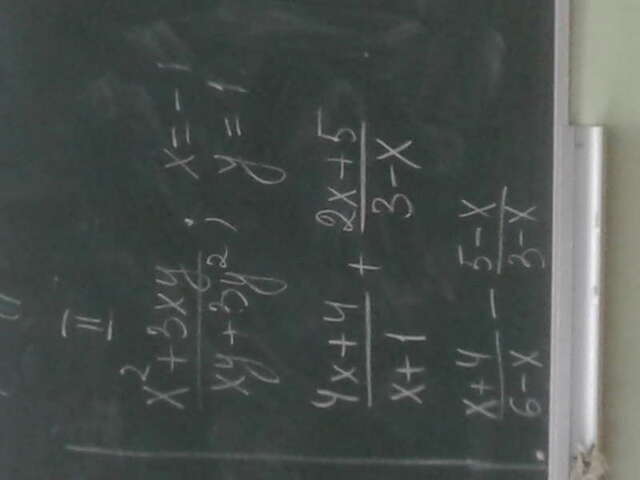 II
x²+3xy / xy+3y² ; x=-1 y=1
4x+4 / x+1 + 2x+5 / 3-x
x+4 / 6-x - 5-x / 3-x